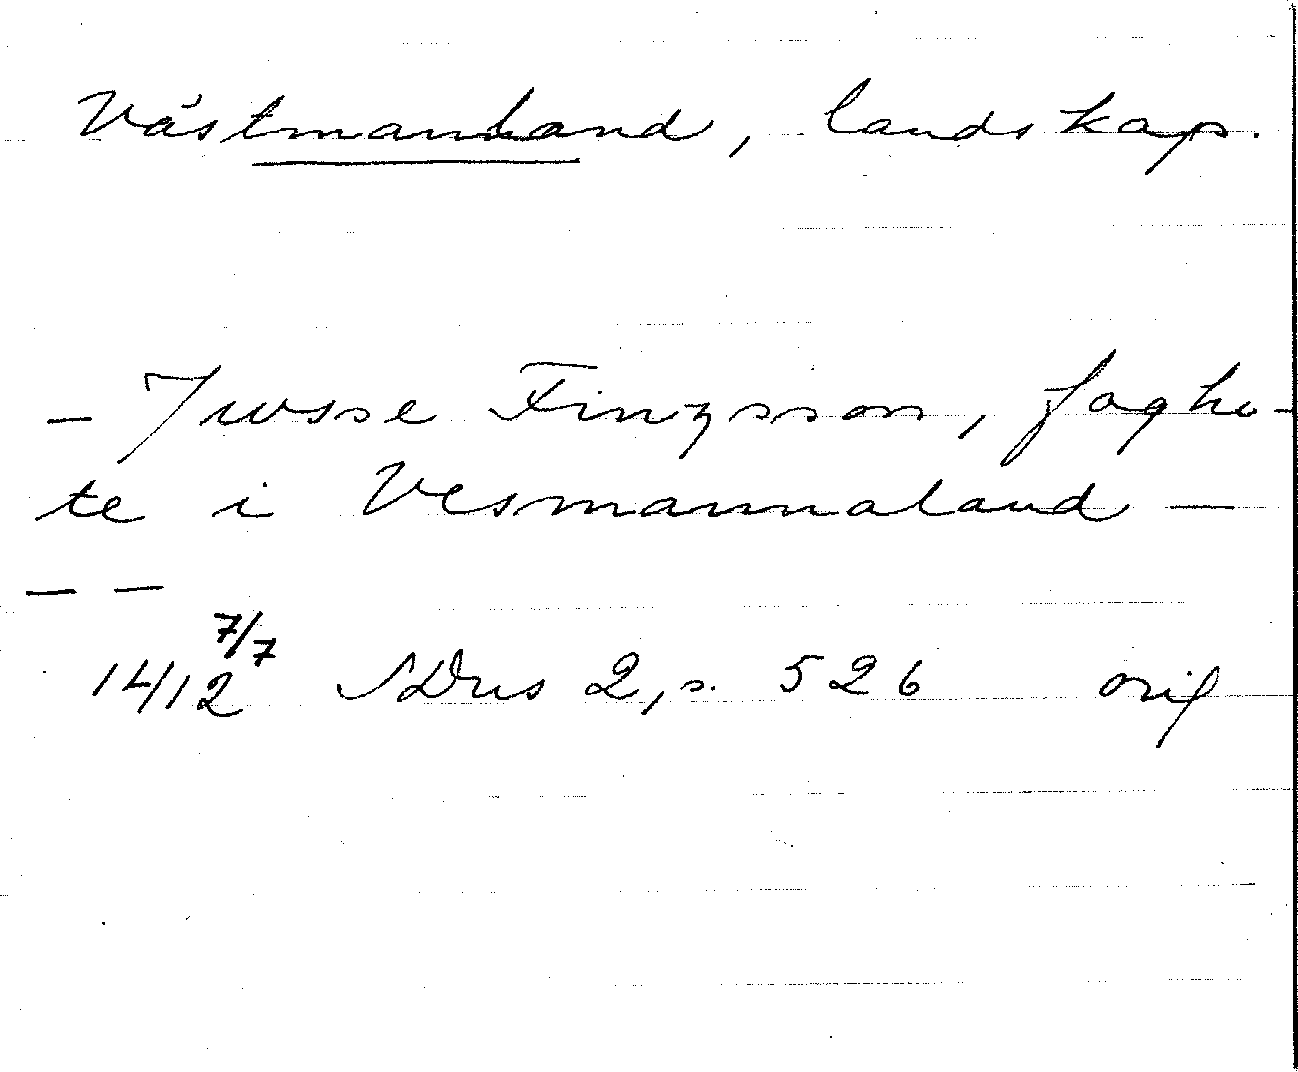 Västmanland, landskap.
- Jwsse Finzsson, fogho-
te i Vesmannaland -
- -
7/7
1412 SDns 2, s. 526 orig